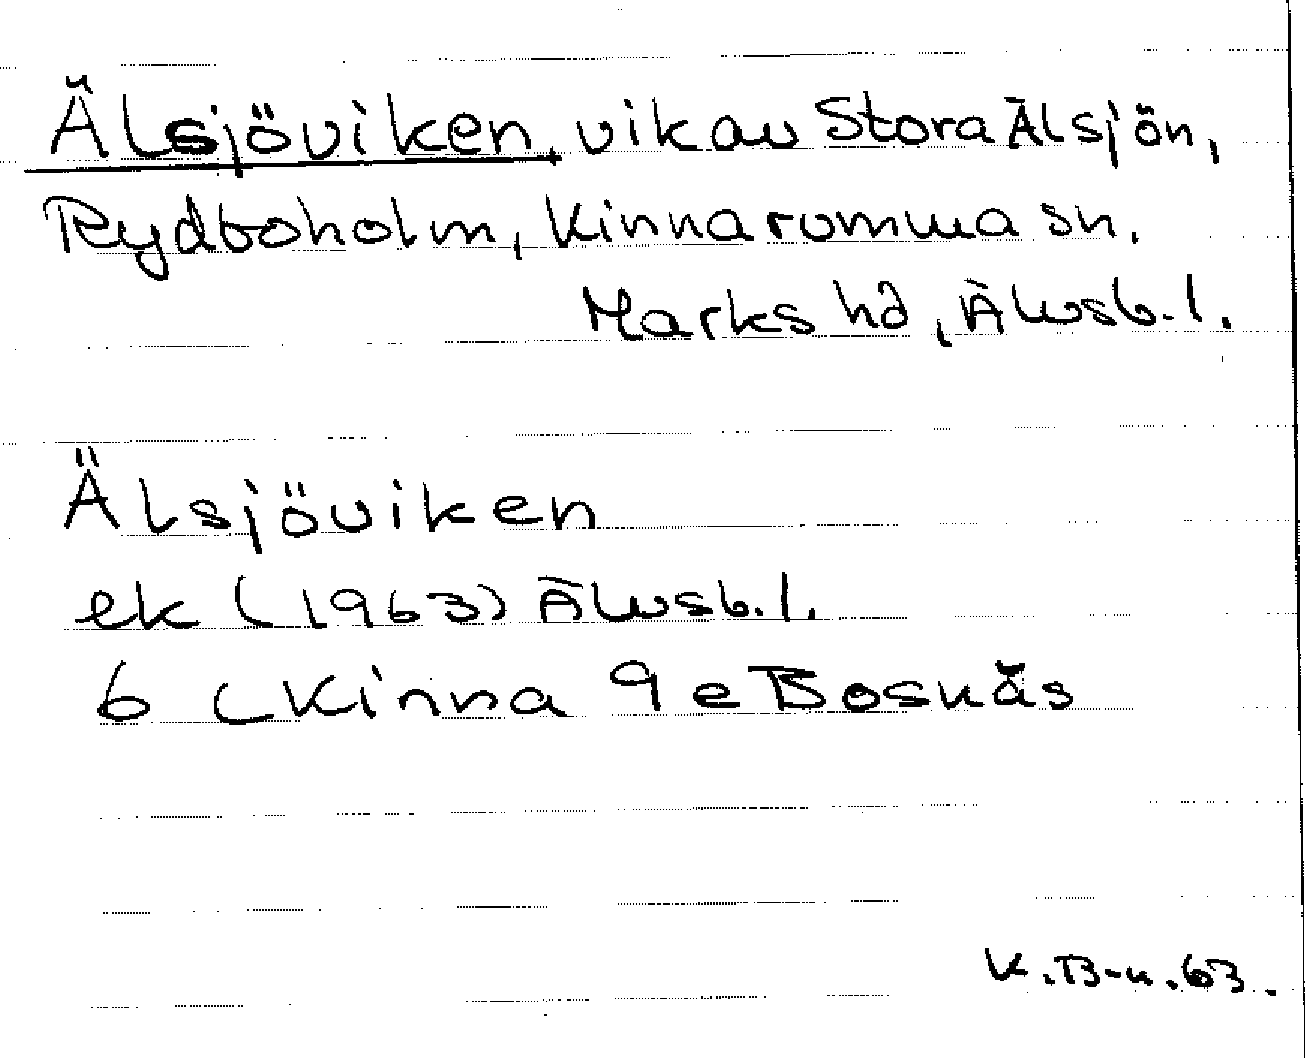 Älsjöviken, vik av Stora Älsjön,
Rydboholm, Kinnarumma sn.
Marks hd, Älvsb. l.
Älsjöviken
ek (1963) Älvsb. l.
6 C Kinna 9 e Bosnäs
K. B-n. 63.